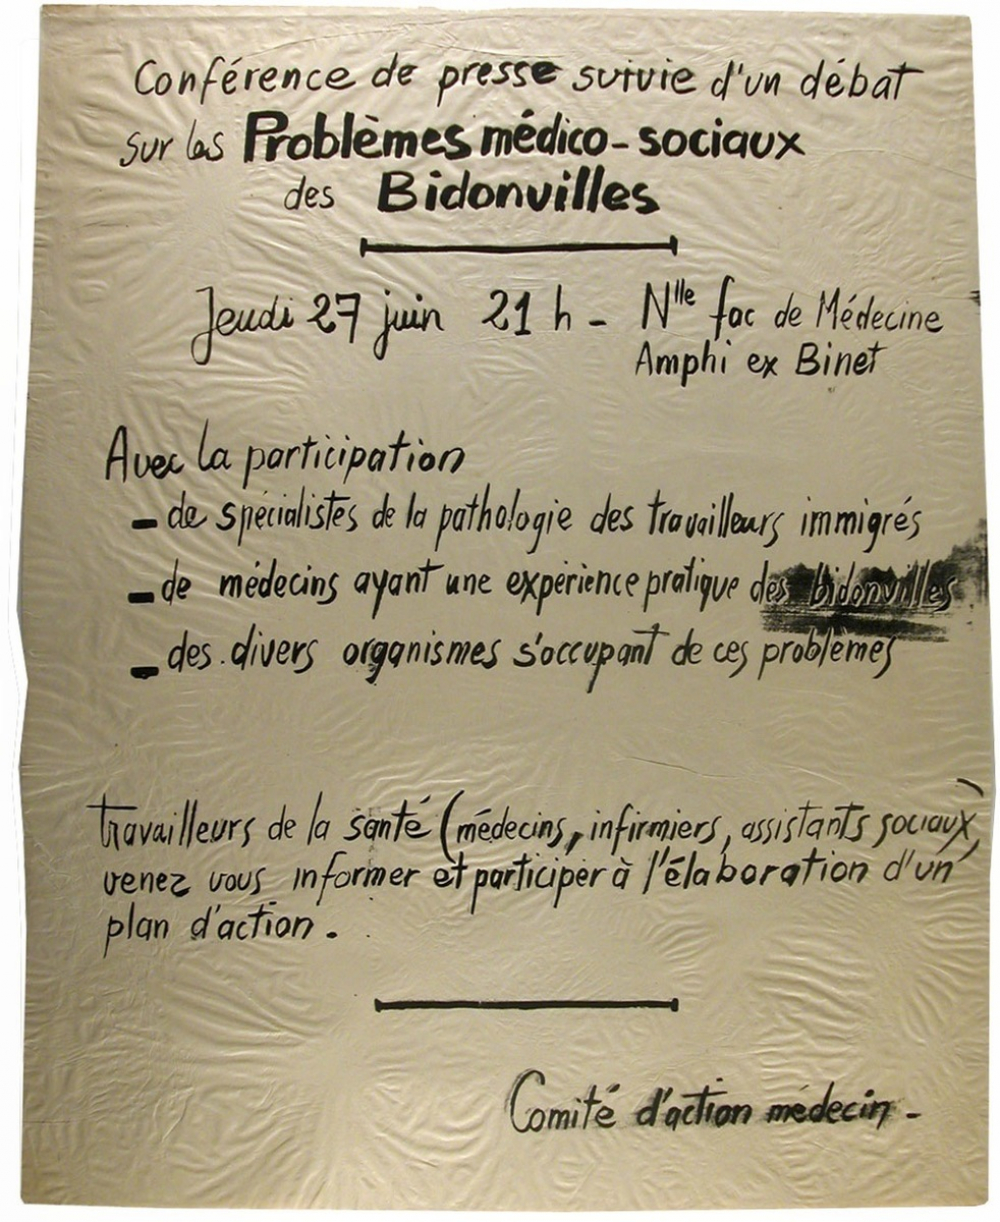 Conférence de presse suivie d'un débat
sur les Problèmes médico-sociaux
des Bidonvilles
Jeudi 27 juin 21 h - Nlle fac de Médecine
Amphi ex Binet
Avec la participation
- de spécialistes de la pathologie des travailleurs immigrés
- de médecins ayant une expérience pratique des bidonvilles
- des divers organismes s'occupant de ces problèmes
travailleurs de la santé (médecins, infirmiers, assistants sociaux)
venez vous informer et participer à l'élaboration d'un
plan d'action.
Comité d'action médecin -